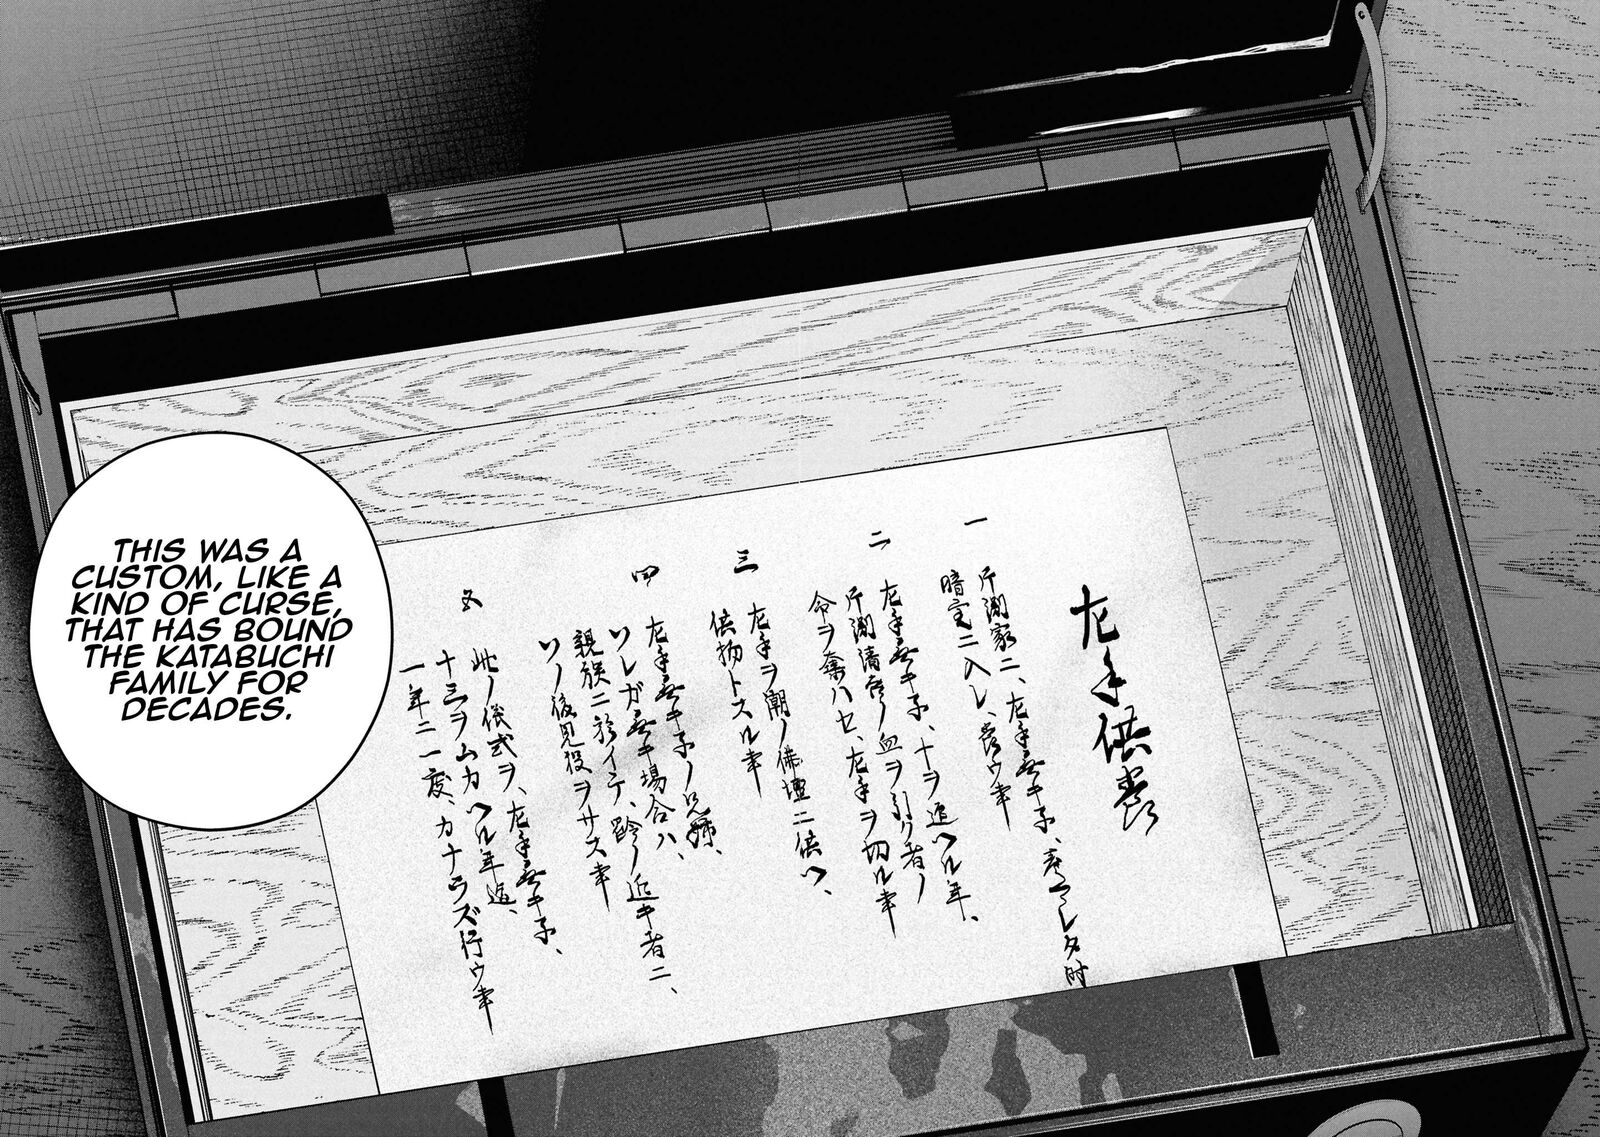 左手供養
一
片淵家ニ、左手無キ子、産マレタ時
暗室ニ入レ、養ウ事
二
左手無キ子、十ヲ迎ヘル年、
片淵清吉ノ血ヲ引ク者ノ
命ヲ奪ハセ、左手ヲ切ル事
三
左手ヲ潮ノ佛壇ニ供ヘ、
供物トスル事
四
左手無キ子ノ兄姉、
ソレガ無キ場合ハ、
親族ニ於イテ、齢ノ近キ者ニ、
ソノ後見役ヲサス事
五
此ノ儀式ヲ、左手無キ子、
十三ヲムカヘル年迄、
一年ニ一度、カナラズ行ウ事
THIS WAS A
CUSTOM, LIKE A
KIND OF CURSE,
THAT HAS BOUND
THE KATABUCHI
FAMILY FOR
DECADES.